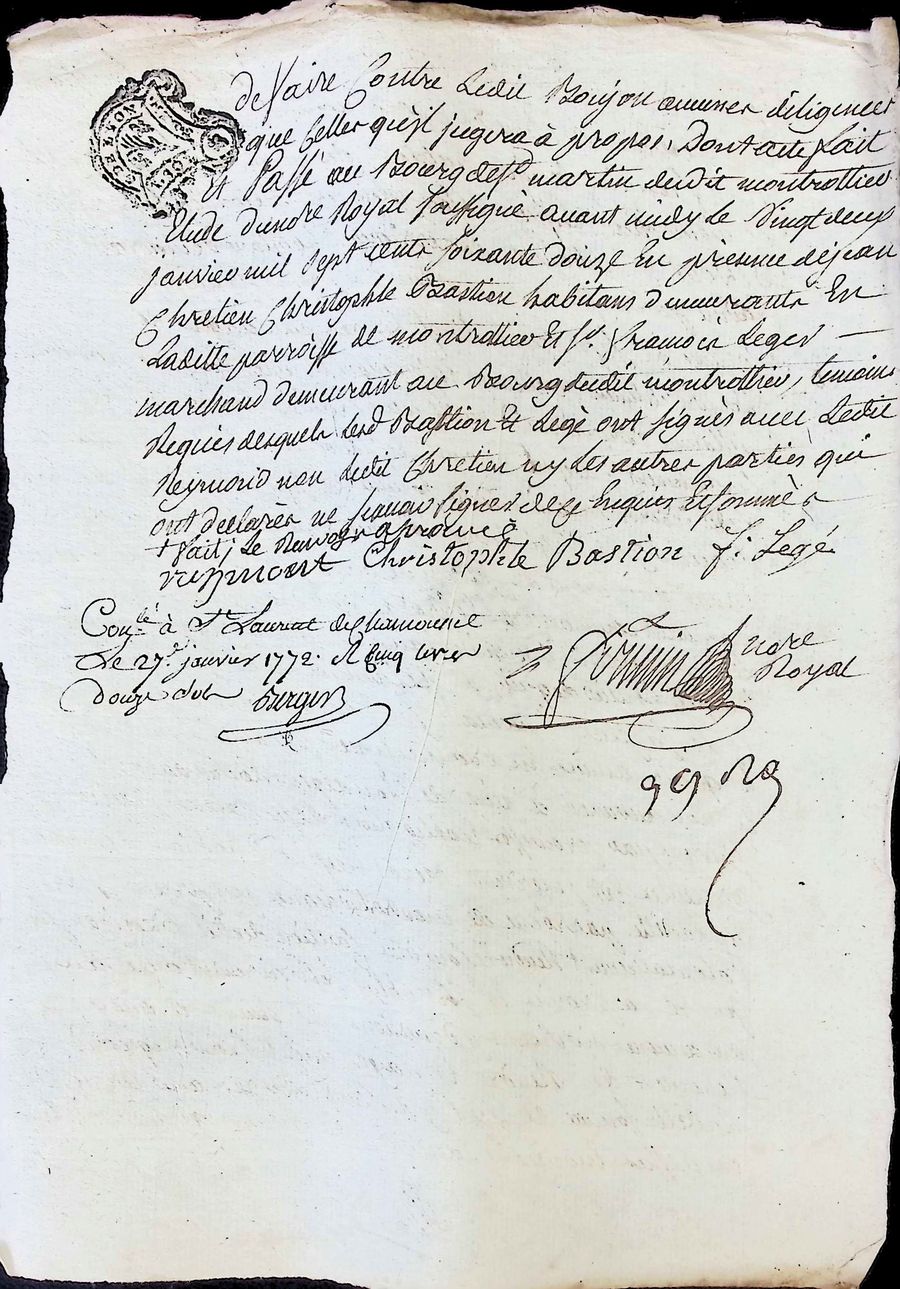 de faire Contre Ledit Boujon aucunes diligences
que Celles qu'il jugera à propos, Dont acte fait
Et Passé au Bourg de St martin dudit montrottier
Etude du nore Royal soussigné avant midy le Vingt deux
janvier mil sept cents soixante douze En présence de jean
Chretien Christophle Bastion habitans demeurants En
Laditte parroisse de montrottier Et Sr. françois Leger —
marchand demeurant au Bourg dudit montrottier, temoins
Requis desquels lesd Bastion Et Legé ont signés avec Ledit
Reymond non Ledit Chretien ny Les autres parties qui
ont declarés ne sçavoir signer de ce Enquis Et sommés
+ fait, Le
reymont Christophle Bastion f. Legé
Conlé à St Laurent de Chamousset
Le 27e. janvier 1772. R Cinq livres
douze sols Berger
nore
Royal